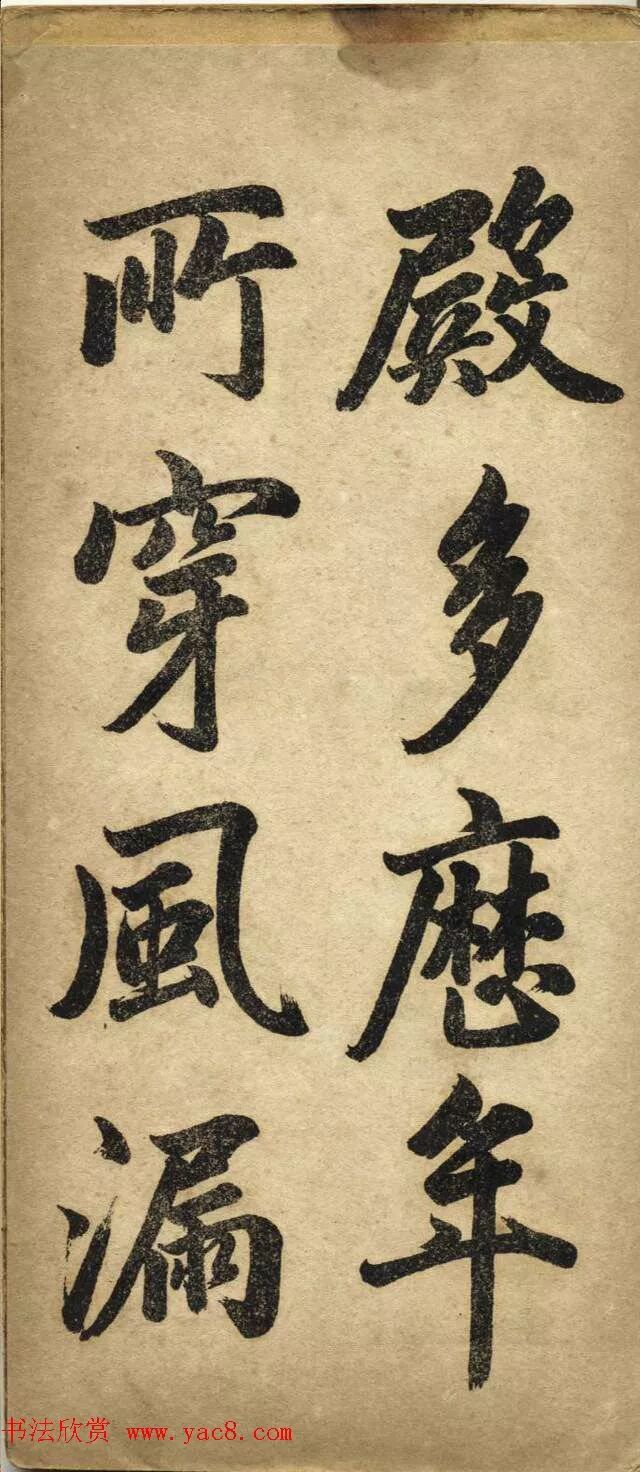 殿多歷年
所穿風漏
书法欣赏 www.yac8.com